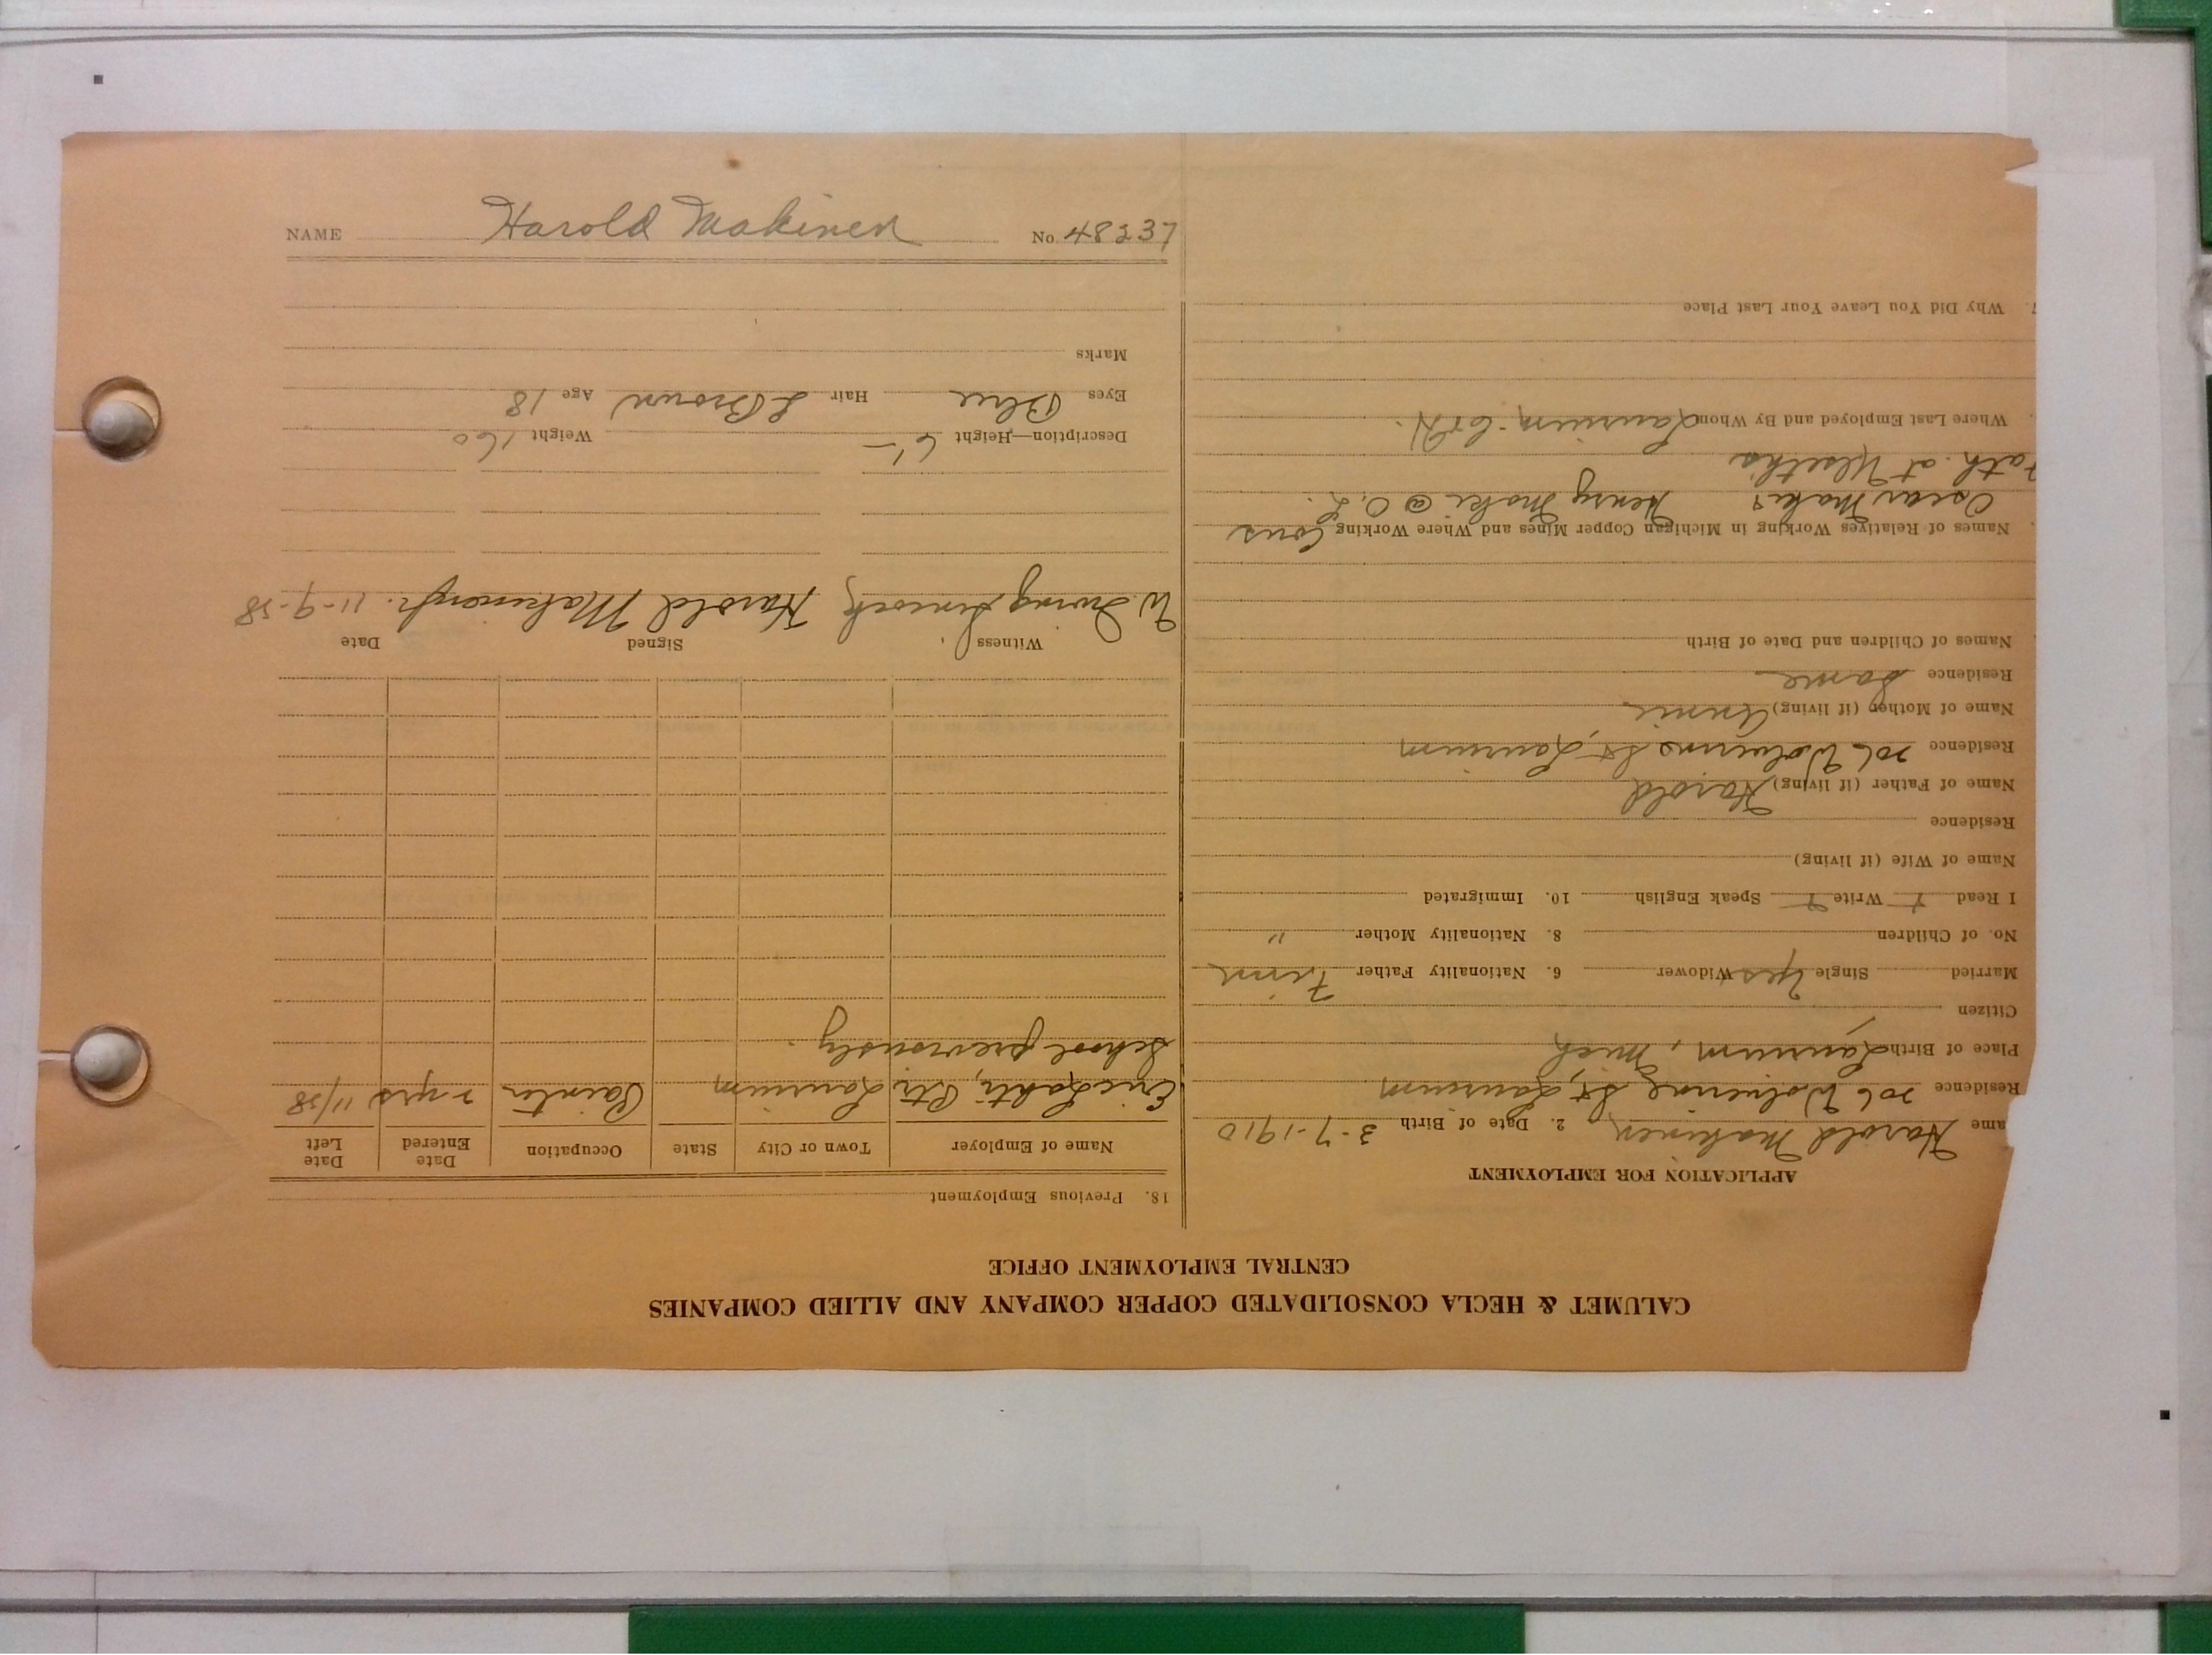 CALUMET & HECLA CONSOLIDATED COPPER COMPANY AND ALLIED COMPANIES
CENTRAL EMPLOYMENT OFFICE
APPLICATION FOR EMPLOYMENT
ame Harold Makinen 2. Date of Birth 3-7-1910
Residence 206 Wolverine St, Laurium
Place of Birth Laurium, Mich
Citizen
Married Single Yes Widower 6. Nationality Father Finn
No. of Children 8. Nationality Mother "
I Read Write Speak English 10. Immigrated
Name of Wife (if living)
Residence
Name of Father (if living) Harold
Residence 206 Wolverine St, Laurium
Name of Mother (if living) Annie
Residence Same
Names of Children and Date of Birth
Names of Relatives Working in Michigan Copper Mines and Where Working Cous
Oscar Maki Henry Maki @ O.L.
Fath. at
Where Last Employed and By Whom Laurium
7. Why Did You Leave Your Last Place
18. Previous Employment
Name of Employer Town or City State Occupation Date Entered Date Left
Eric Lahti, Ptr Laurium Painter 2 yrs 11/28
School previously.
Witness Signed Date
W. Irving Harold Makinen Jr. 11-9-28
Description—Height 6'- Weight 160
Eyes Blue Hair L Brown Age 18
Marks
NAME Harold Makinen No. 48237